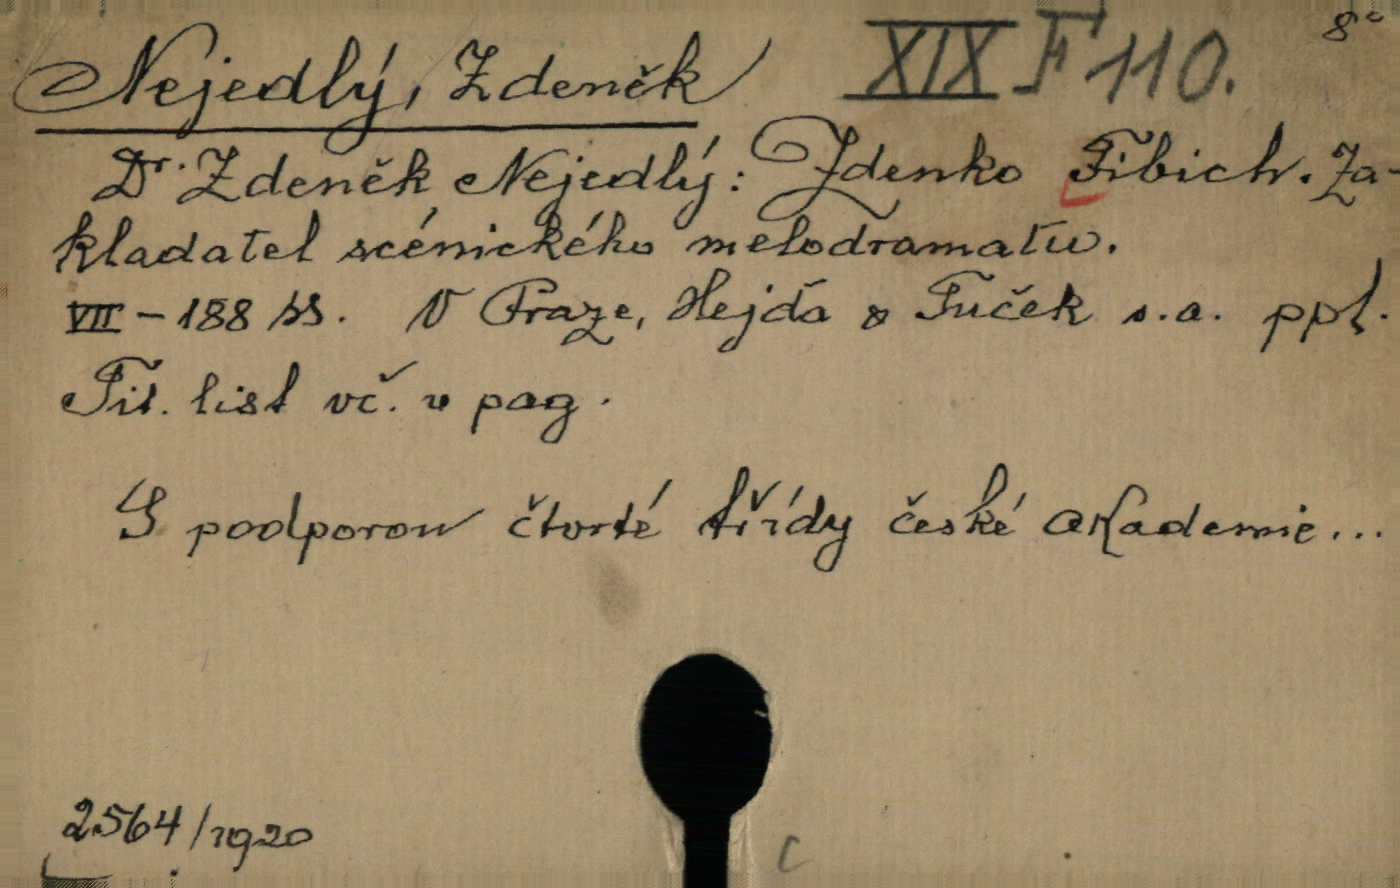 Nejedlý, Zdeněk XIX F 110. 8°
Dr. Zdeněk Nejedlý: Zdenko Fibich. Za-
kladatel scénického melodramatu.
VII - 188 ss. V Praze, Hejda & Tuček s.a. ppl.
Tit. list vč. v pag.
S podporou čtvrté třídy české akademie...
2564/1920
C